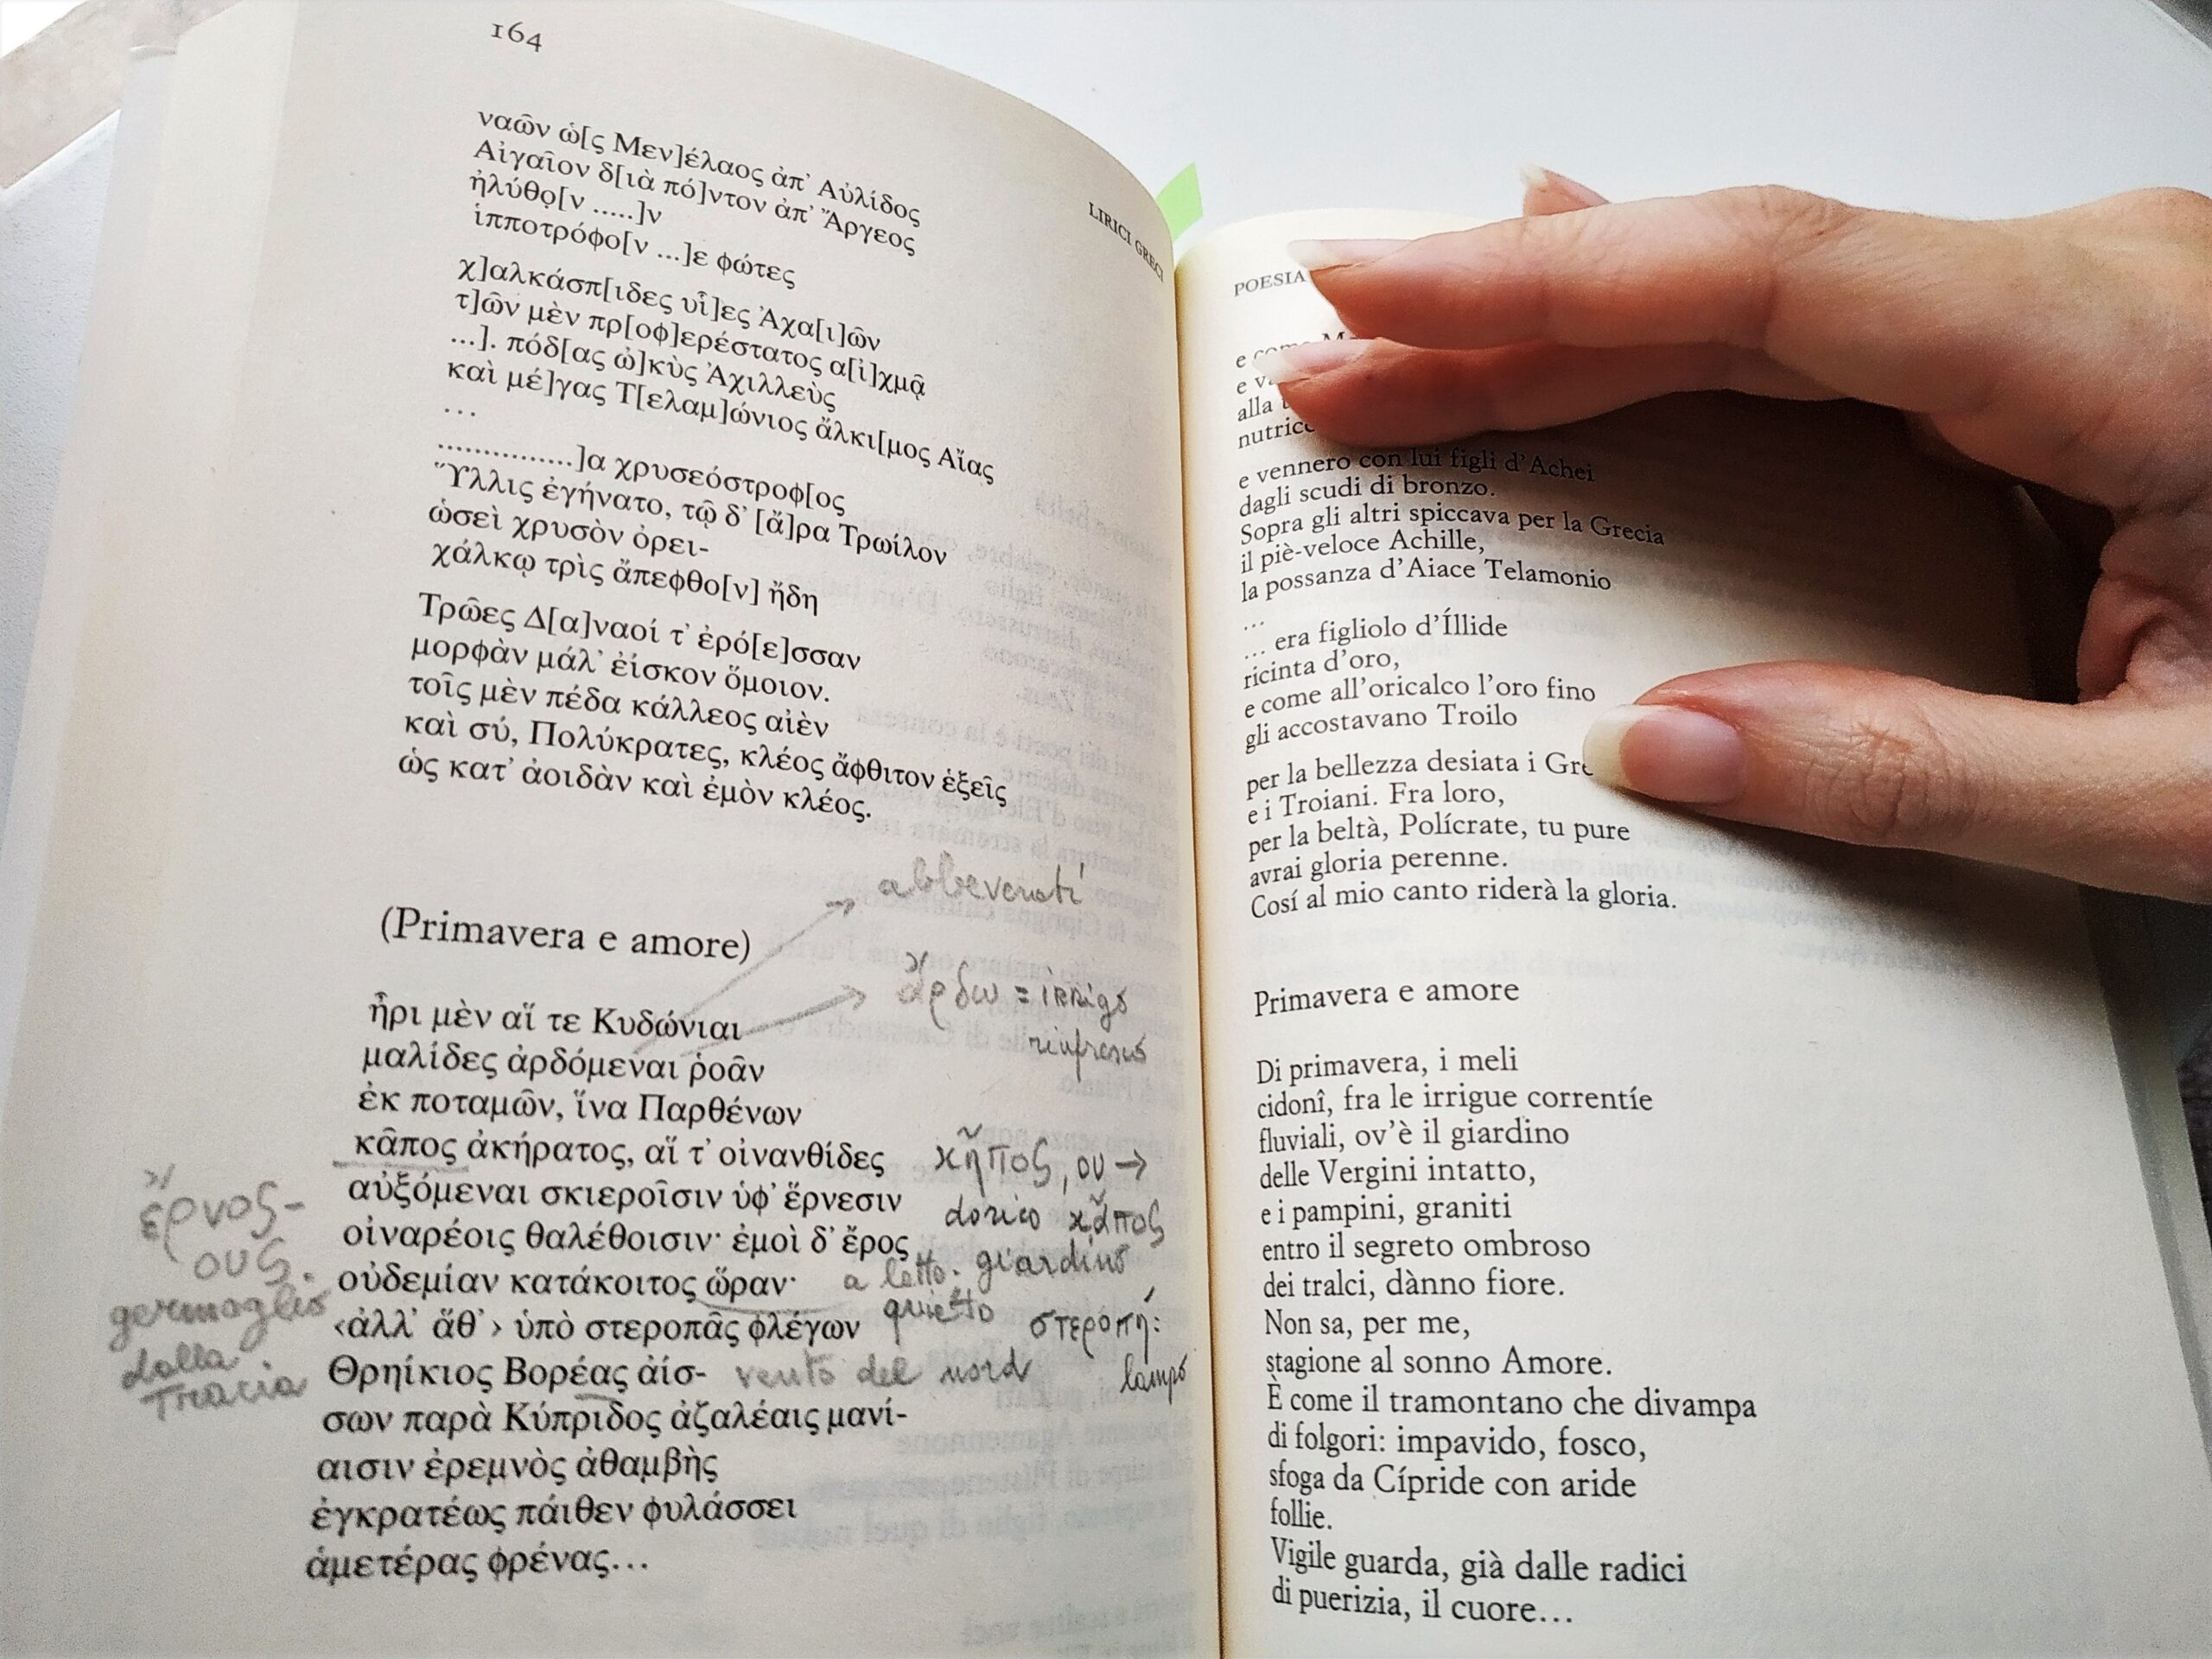 164
LIRICI GRECI
ναῶν ὡ[ς Μεν]έλαος ἀπ' Αὐλίδος
Αἰγαῖον δ[ιὰ πό]ντον ἀπ' Ἄργεος
ἠλύθο[ν .....]ν
ἱπποτρόφο[ν ...]ε φώτες
χ]αλκάσπ[ιδες υἷ]ες Ἀχα[ι]ῶν
τ]ῶν μὲν πρ[οφ]ερέστατος α[ἰ]χμᾷ
...]. πόδ[ας ὠ]κὺς Ἀχιλλεὺς
καὶ μέ]γας Τ[ελαμ]ώνιος ἄλκι[μος Αἴας
...
...............]α χρυσεόστροφ[ος
Ὕλλις ἐγήνατο, τῷ δ' [ἄ]ρα Τρωίλον
ὡσεὶ χρυσὸν ὀρει-
χάλκῳ τρὶς ἄπεφθο[ν] ἤδη
Τρῶες Δ[α]ναοί τ' ἐρό[ε]σσαν
μορφὰν μάλ' ἐίσκον ὅμοιον.
τοῖς μὲν πέδα κάλλεος αἰὲν
καὶ σύ, Πολύκρατες, κλέος ἄφθιτον ἑξεῖς
ὡς κατ' ἀοιδὰν καὶ ἐμὸν κλέος.
abbeverati
(Primavera e amore)
ἄρδω = irrigo
rinfresco
ἦρι μὲν αἵ τε Κυδώνιαι
μαλίδες ἀρδόμεναι ῥοᾶν
ἐκ ποταμῶν, ἵνα Παρθένων
κᾶπος ἀκήρατος, αἵ τ' οἰνανθίδες
αὐξόμεναι σκιεροῖσιν ὑφ' ἕρνεσιν
οἰναρέοις θαλέθοισιν· ἐμοὶ δ' ἔρος
οὐδεμίαν κατάκοιτος ὥραν·
‹ἀλλ' ἅθ'› ὑπὸ στεροπᾶς φλέγων
Θρηίκιος Βορέας ἀίσ-
σων παρὰ Κύπριδος ἀζαλέαις μανί-
αισιν ἐρεμνὸς ἀθαμβὴς
ἐγκρατέως πάιθεν φυλάσσει
ἁμετέρας φρένας...
κῆπος, ου →
dorico κᾶπος
giardino
a letto.
quieto
στεροπή:
lampo
vento del nord
ἔρνος-
ους.
germoglio
dalla
Tracia
POESIA
e come M
e va
alla
nutrice
e vennero con lui figli d'Achei
dagli scudi di bronzo.
Sopra gli altri spiccava per la Grecia
il piè-veloce Achille,
la possanza d'Aiace Telamonio
...
... era figliolo d'Íllide
ricinta d'oro,
e come all'oricalco l'oro fino
gli accostavano Troilo
per la bellezza desiata i Gre
e i Troiani. Fra loro,
per la beltà, Polícrate, tu pure
avrai gloria perenne.
Cosí al mio canto riderà la gloria.
Primavera e amore
Di primavera, i meli
cidonî, fra le irrigue correntíe
fluviali, ov'è il giardino
delle Vergini intatto,
e i pampini, graniti
entro il segreto ombroso
dei tralci, dànno fiore.
Non sa, per me,
stagione al sonno Amore.
È come il tramontano che divampa
di folgori: impavido, fosco,
sfoga da Cípride con aride
follie.
Vigile guarda, già dalle radici
di puerizia, il cuore...